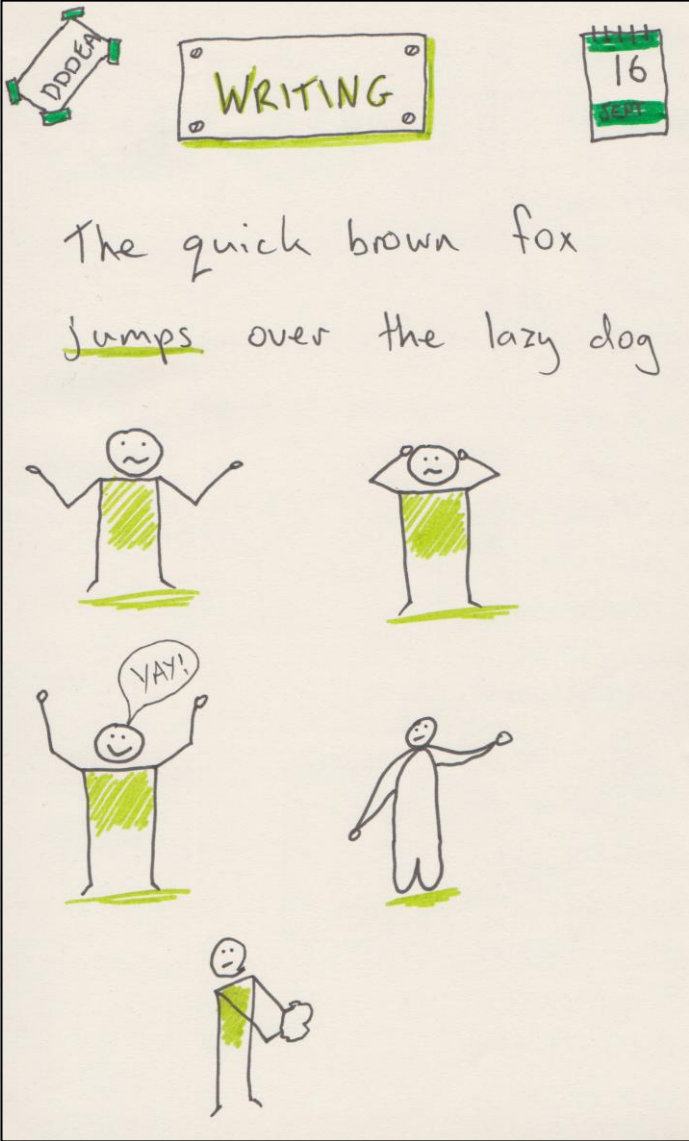 DDDEA
WRITING
16
SEPT
The quick brown fox
jumps over the lazy dog
YAY!